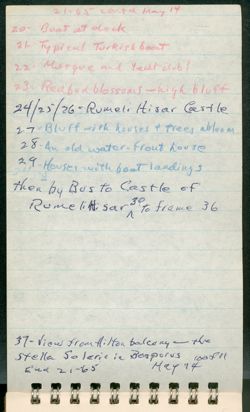 21-65 cont'd May 14
20- Boat at dock
21- Typical Turkish boat
22- Mosque and Yacht club!
23- Redbud blossoms — high bluff
24/25/26 - Rumeli Hisar Castle
27- Bluff with houses + trees abloom
28- An old water-front house
29- Houses with boat landings
then by Bus to Castle of
Rumeli Hisar 30 to frame 36
37- View from Hilton balcony — the
Stella Solaris in Bosporus
End 21-65 May 14